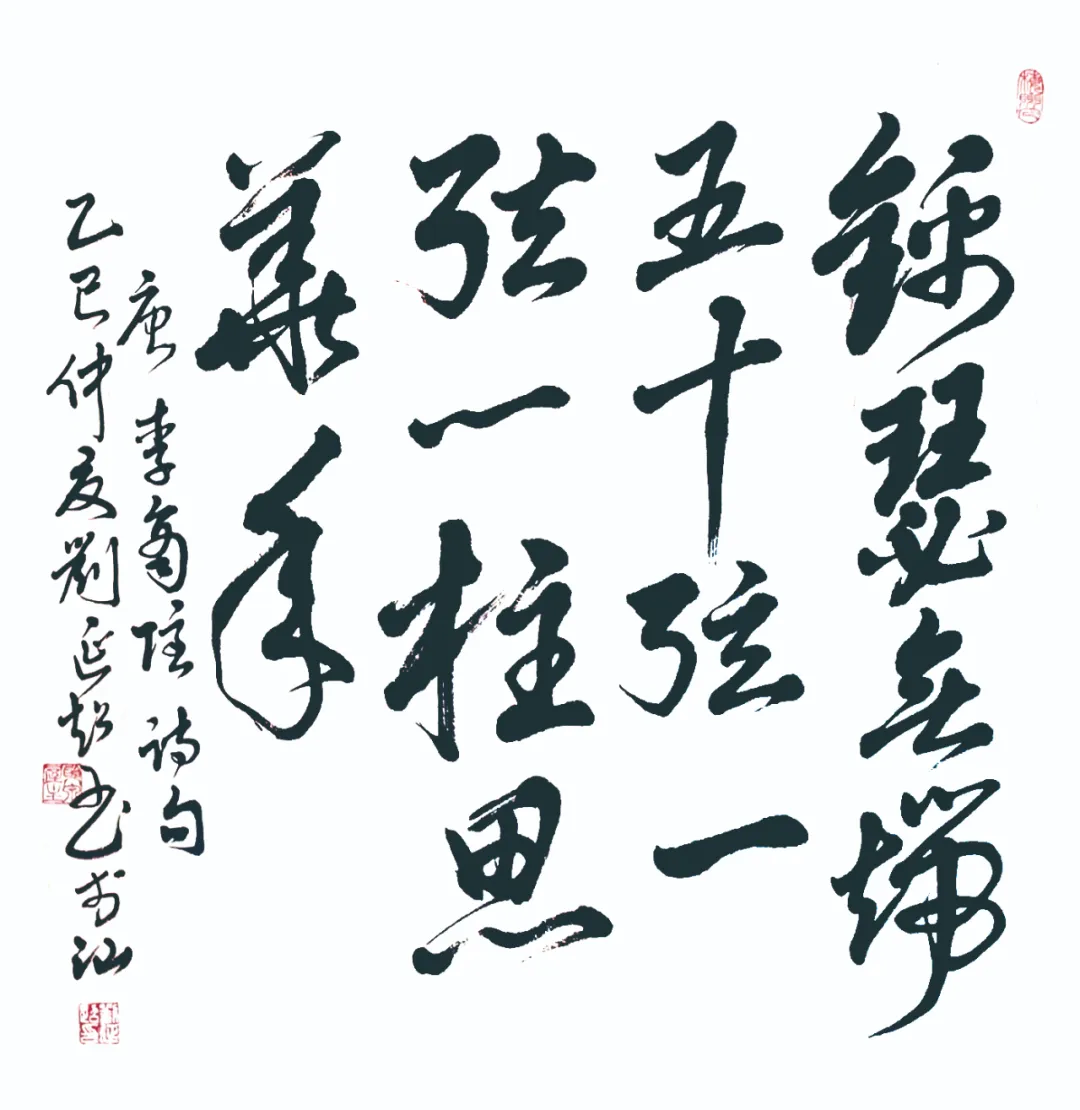 錦瑟無端
五十弦一
弦一柱思
華年
唐李商隱詩句
乙巳仲夏劉延超書於汕